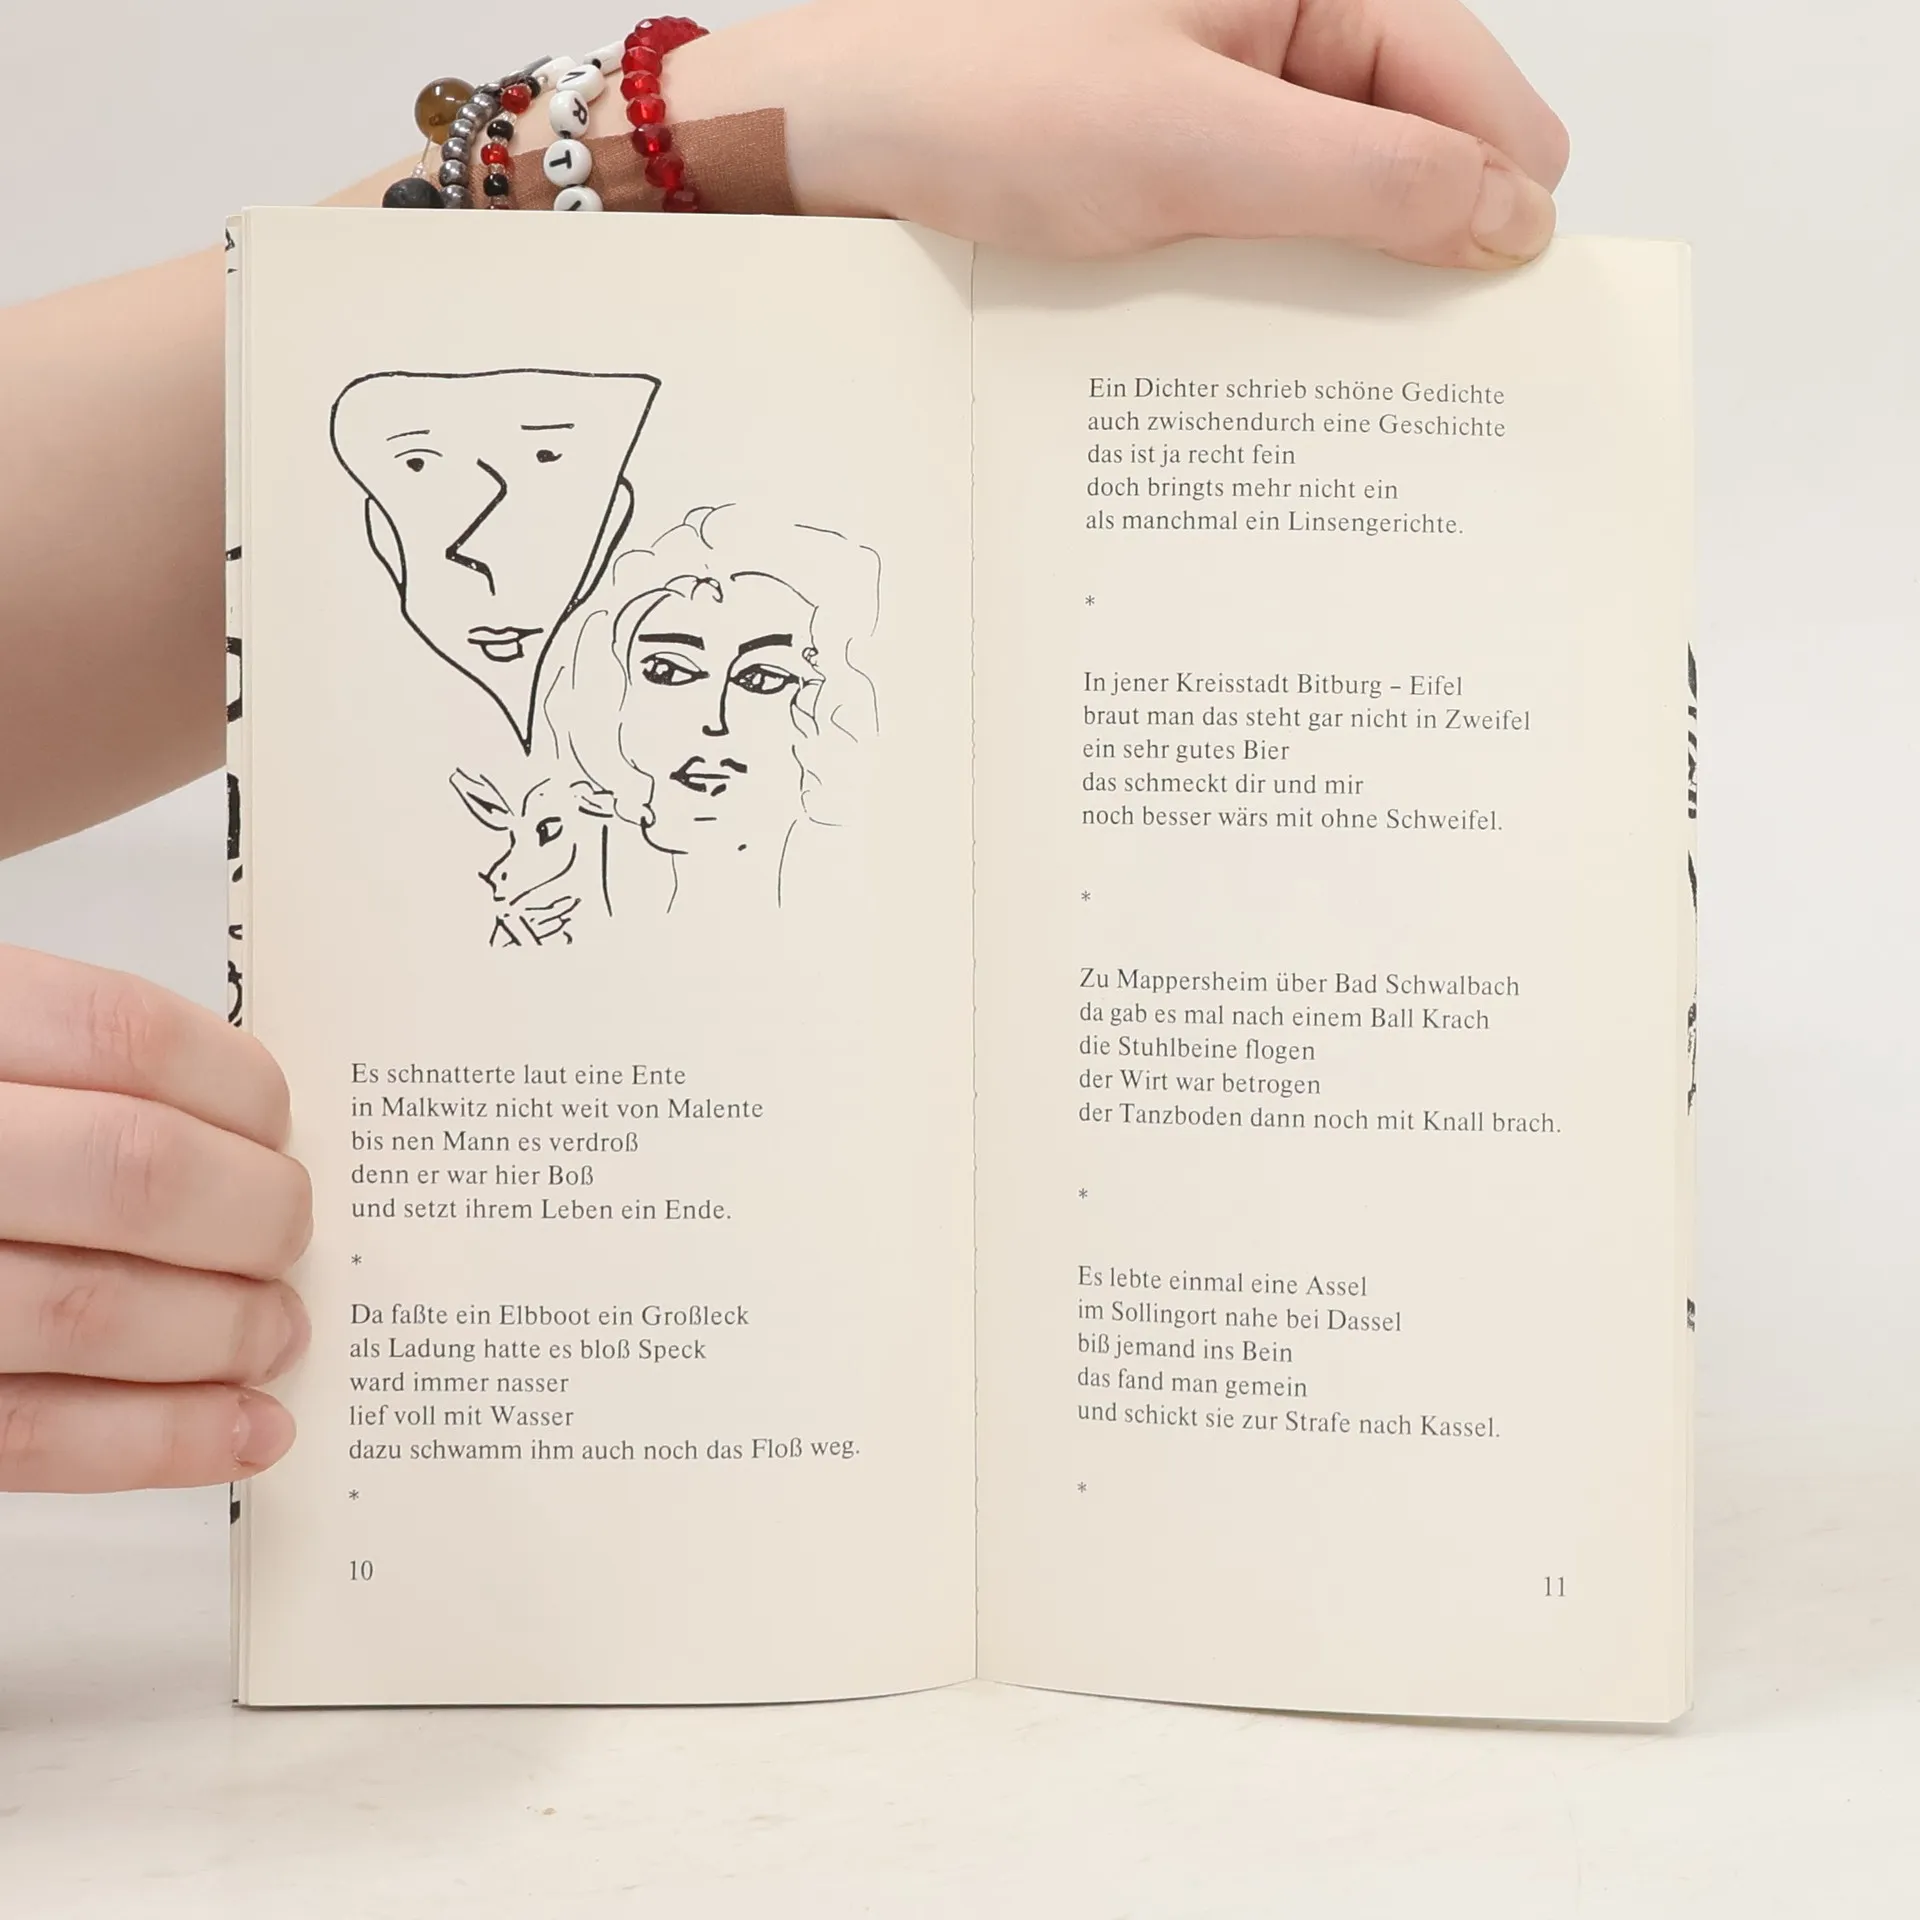 Es schnatterte laut eine Ente
in Malkwitz nicht weit von Malente
bis nen Mann es verdroß
denn er war hier Boß
und setzt ihrem Leben ein Ende.
*
Da faßte ein Elbboot ein Großleck
als Ladung hatte es bloß Speck
ward immer nasser
lief voll mit Wasser
dazu schwamm ihm auch noch das Floß weg.
*
10
Ein Dichter schrieb schöne Gedichte
auch zwischendurch eine Geschichte
das ist ja recht fein
doch bringts mehr nicht ein
als manchmal ein Linsengerichte.
*
In jener Kreisstadt Bitburg – Eifel
braut man das steht gar nicht in Zweifel
ein sehr gutes Bier
das schmeckt dir und mir
noch besser wärs mit ohne Schweifel.
*
Zu Mappersheim über Bad Schwalbach
da gab es mal nach einem Ball Krach
die Stuhlbeine flogen
der Wirt war betrogen
der Tanzboden dann noch mit Knall brach.
*
Es lebte einmal eine Assel
im Sollingort nahe bei Dassel
biß jemand ins Bein
das fand man gemein
und schickt sie zur Strafe nach Kassel.
*
11